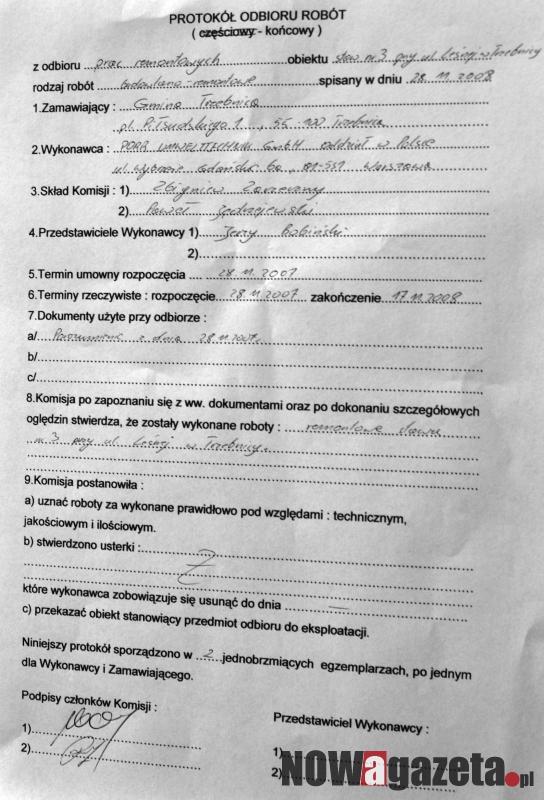 PROTOKÓŁ ODBIORU ROBÓT
( częściowy - końcowy )
z odbioru ... prac remontowych ... obiektu staw nr 3 przy ul. Leśnej w Trzebnicy
rodzaj robót ... budowlano-remontowe ... spisany w dniu 28.11.2008
1.Zamawiający : Gmina Trzebnica
pl. Piłsudskiego 1 , 55-100 Trzebnica
2.Wykonawca : PORR UMWELTTECHNIK GmbH oddział w Polsce
ul. Wybrzeże Gdańskie 6a , 01-531 Warszawa
3.Skład Komisji : 1) Zbigniew
2) Paweł Jędrzejewski
4.Przedstawiciele Wykonawcy 1) Jerzy Bobiński
2)
5.Termin umowny rozpoczęcia .... 28.11.2007
6.Terminy rzeczywiste : rozpoczęcie... 28.11.2007 ... zakończenie 17.11.2008
7.Dokumenty użyte przy odbiorze :
a/ Porozumienie z dnia 28.11.2007r.
b/
c/
8.Komisja po zapoznaniu się z ww. dokumentami oraz po dokonaniu szczegółowych
oględzin stwierdza, że zostały wykonane roboty : remontowe stawu
nr 3 przy ul. Leśnej w Trzebnicy.
9.Komisja postanowiła :
a) uznać roboty za wykonane prawidłowo pod względami : technicznym,
jakościowym i ilościowym.
b) stwierdzono usterki :
które wykonawca zobowiązuje się usunąć do dnia ... —
c) przekazać obiekt stanowiący przedmiot odbioru do eksploatacji.
Niniejszy protokół sporządzono w ...2... jednobrzmiących egzemplarzach, po jednym
dla Wykonawcy i Zamawiającego.
Podpisy członków Komisji :
1)
2)
Przedstawiciel Wykonawcy :
1)
2)
NOWagazeta.pl